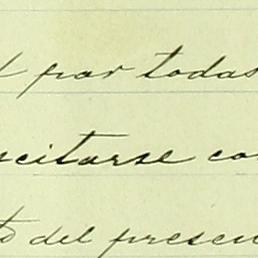 l por todas
citarse co
to del presen